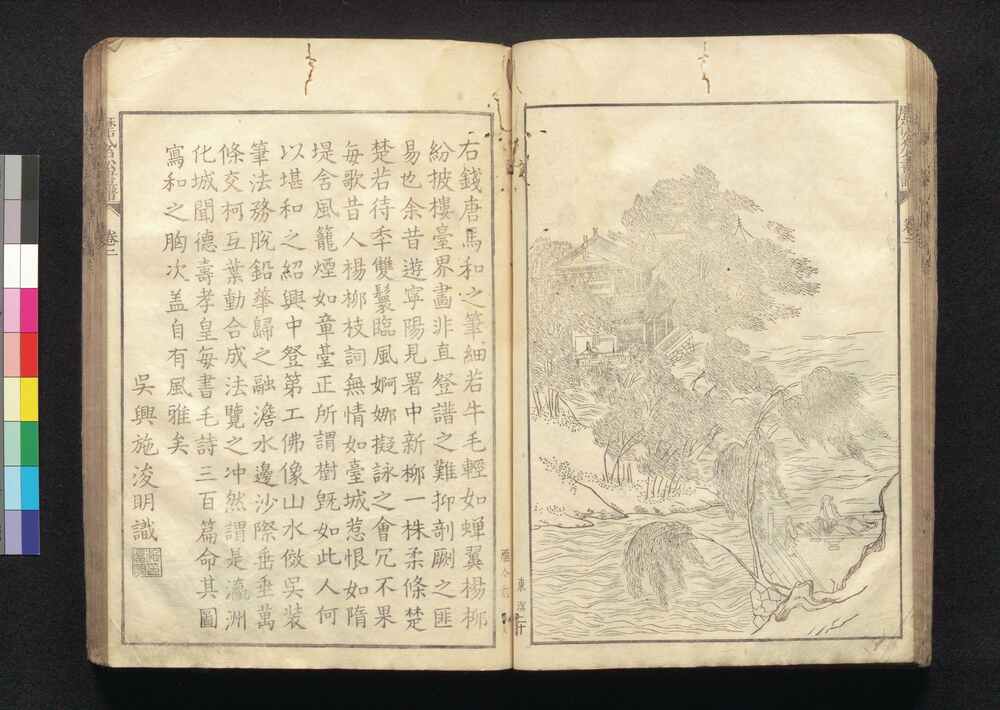 右錢唐馬和之筆細若牛毛輕如蟬翼楊柳
紛披樓臺界畫非直登譜之難抑剞劂之匪
易也余昔遊寧陽見署中新柳一株柔條楚
楚若待年雙鬟臨風婀娜擬詠之會冗不果
每歌昔人楊柳枝詞無情如臺城惹恨如隋
堤含風籠煙如章臺正所謂樹旣如此人何
以堪和之紹興中登第工佛像山水倣吳裝
筆法務脫鉛華歸之融澹水邊沙際垂垂萬
條交柯互葉動合成法覽之冲然謂是瀛洲
化城聞德壽孝皇每書毛詩三百篇命其圖
寫和之胸次盖自有風雅矣
吳興施浚明識
卷二